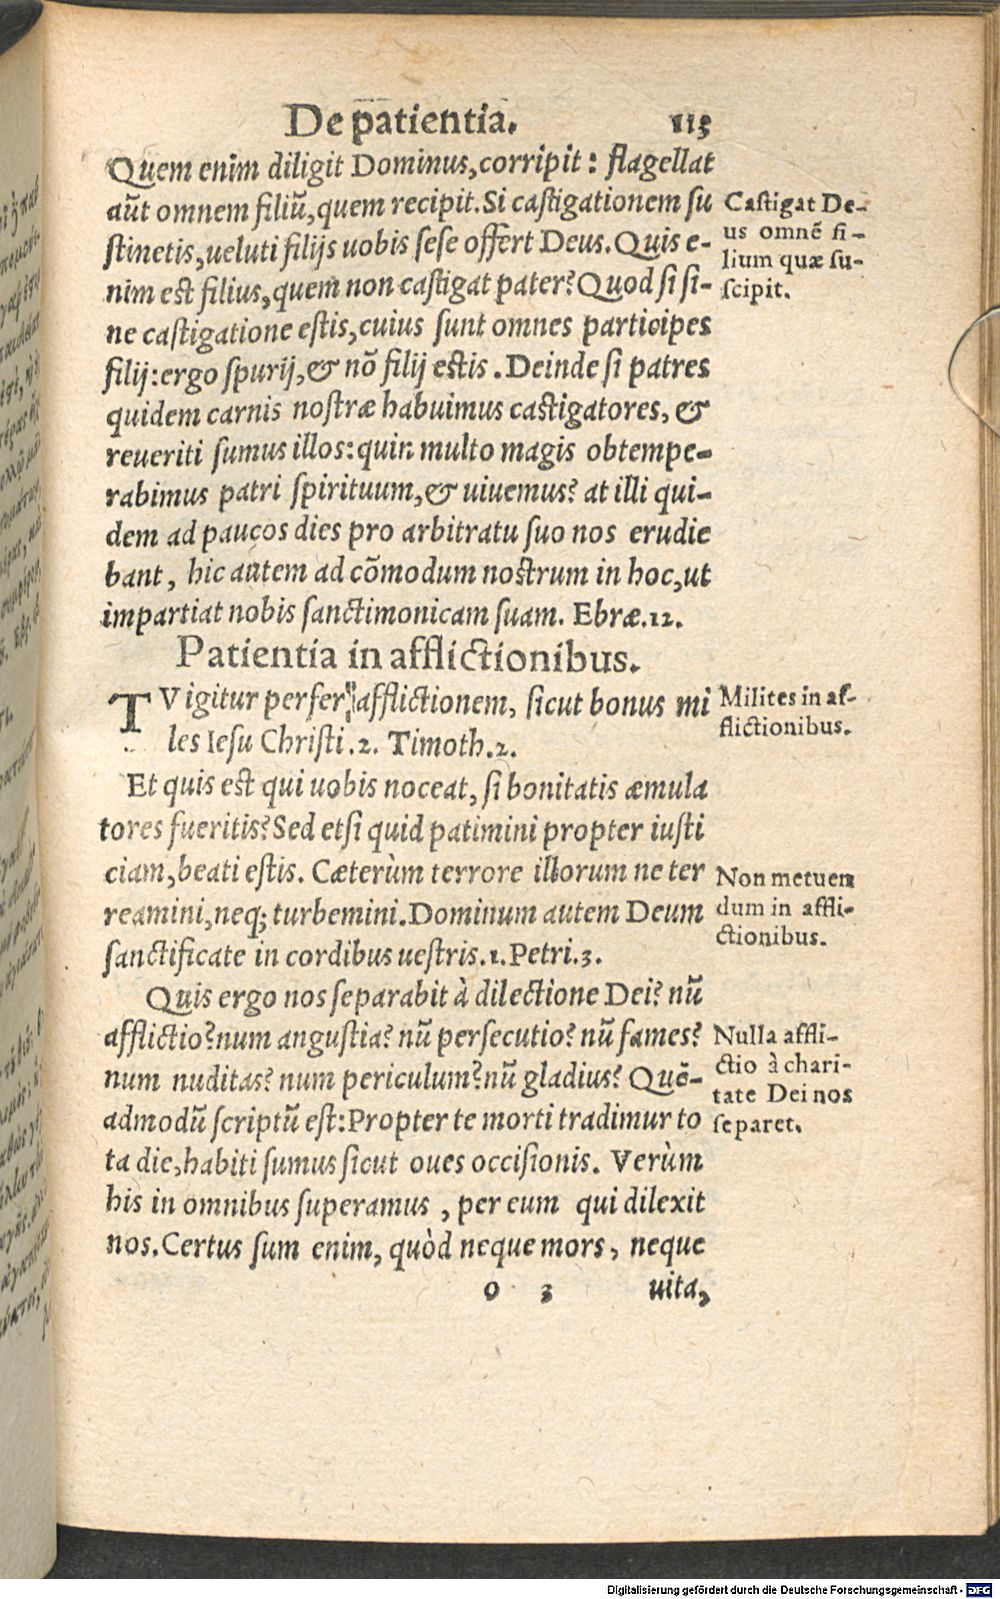 De patientia. 113
Quem enim diligit Dominus, corripit: flagellat
aũt omnem filiũ, quem recipit. Si castigationem su
stinetis, ueluti filijs uobis sese offert Deus. Quis e-
nim est filius, quem non castigat pater? Quod si si-
ne castigatione estis, cuius sunt omnes participes
filij: ergo spurij, & nõ filij estis. Deinde si patres
quidem carnis nostræ habuimus castigatores, &
reueriti sumus illos: quin multo magis obtempe-
rabimus patri spirituum, & uiuemus? at illi qui-
dem ad paucos dies pro arbitratu suo nos erudie
bant, hic autem ad cõmodum nostrum in hoc, ut
impartiat nobis sanctimonicam suam. Ebræ.12.
Castigat De-
us omnẽ fi-
lium quæ su-
scipit.
Patientia in afflictionibus.
TV igitur perfer afflictionem, sicut bonus mi
les Iesu Christi.2. Timoth.2.
Milites in af-
flictionibus.
Et quis est qui uobis noceat, si bonitatis æmula
tores fueritis? Sed etsi quid patimini propter iusti
ciam, beati estis. Cæterùm terrore illorum ne ter
reamini, neq; turbemini. Dominum autem Deum
sanctificate in cordibus uestris.1. Petri.3.
Non metuen
dum in affli-
ctionibus.
Quis ergo nos separabit à dilectione Dei? nũ
afflictio? num angustia? nũ persecutio? nũ fames?
num nuditas? num periculum? nũ gladius? Quẽ-
admodũ scriptũ est: Propter te morti tradimur to
ta die, habiti sumus sicut oues occisionis. Verùm
his in omnibus superamus, per eum qui dilexit
nos. Certus sum enim, quòd neque mors, neque
Nulla affli-
ctio à chari-
tate Dei nos
separet.
o 3 uita,
Digitalisierung gefördert durch die Deutsche Forschungsgemeinschaft - DFG